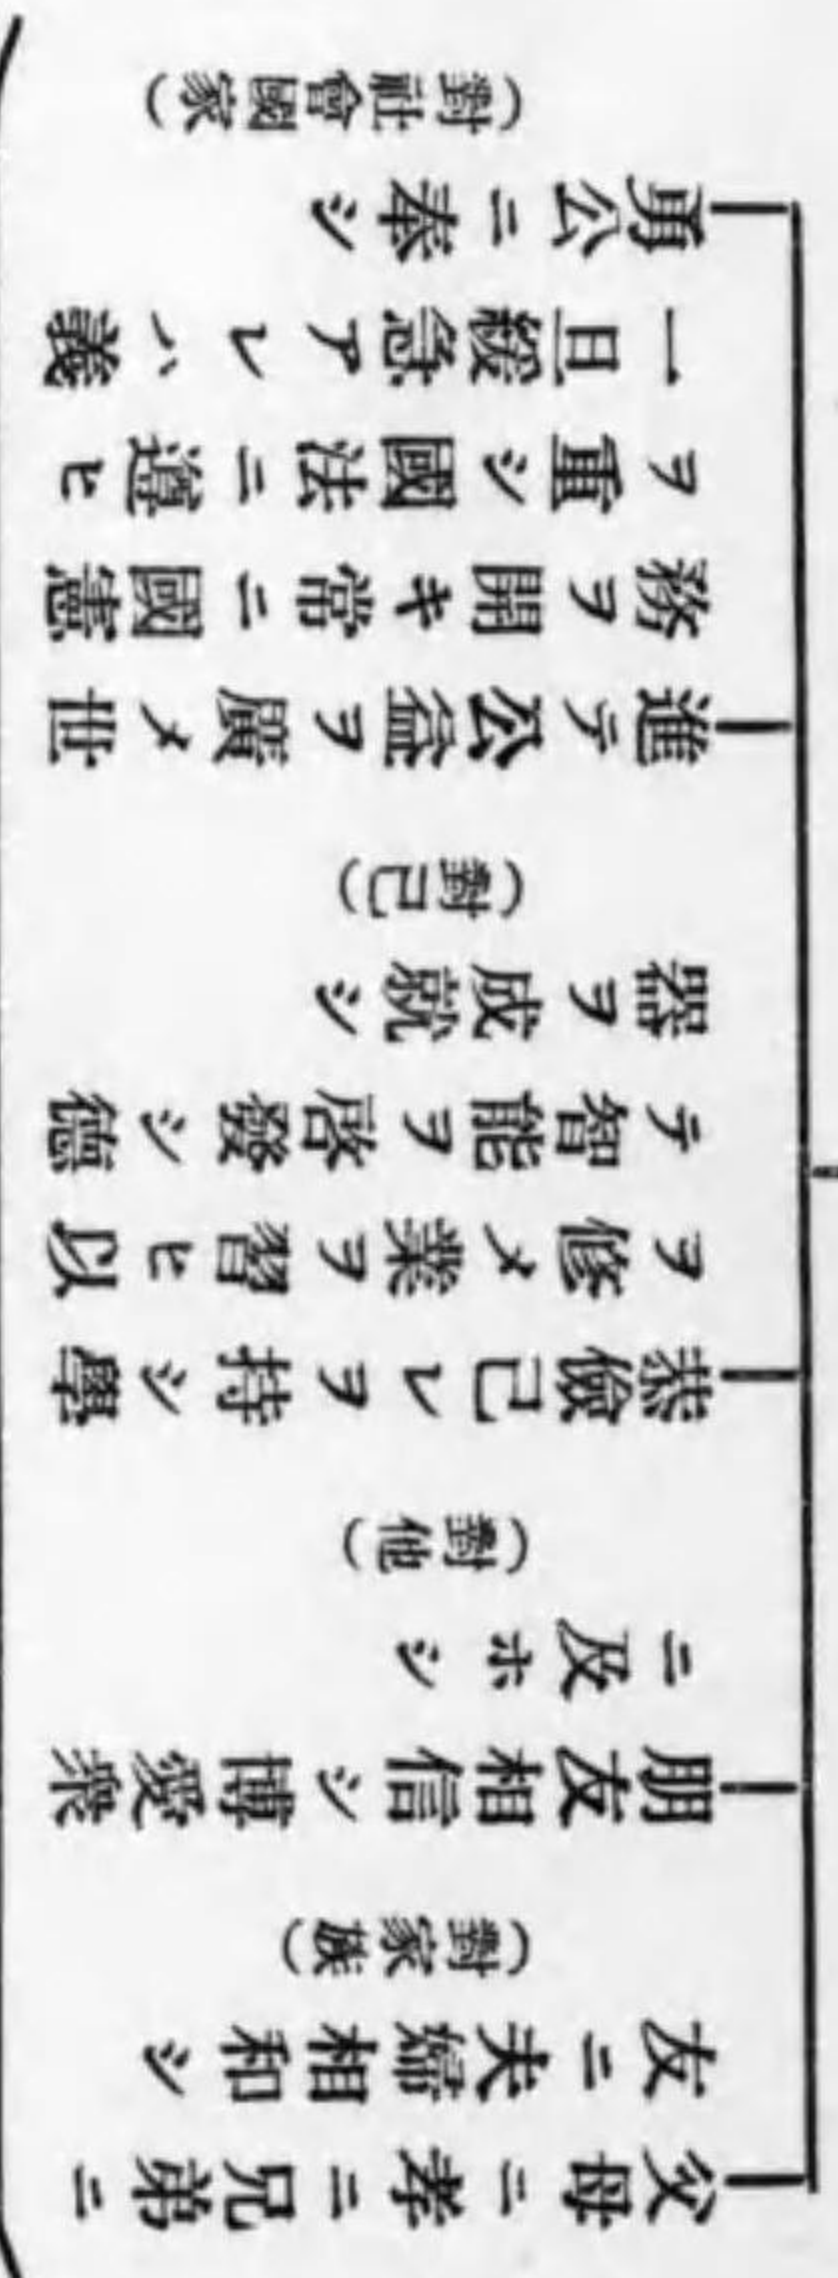 父母ニ孝ニ兄弟ニ
友ニ夫婦相和シ
(對家族)
朋友相信シ博愛衆
ニ及ホシ
(對他)
恭儉己レヲ持シ學
ヲ修メ業ヲ習ヒ以
テ智能ヲ啓發シ德
器ヲ成就シ
(對己)
進テ公益ヲ廣メ世
務ヲ開キ常ニ國憲
ヲ重シ國法ニ遵ヒ
一旦緩急アレハ義
勇公ニ奉シ
(對社會國家)